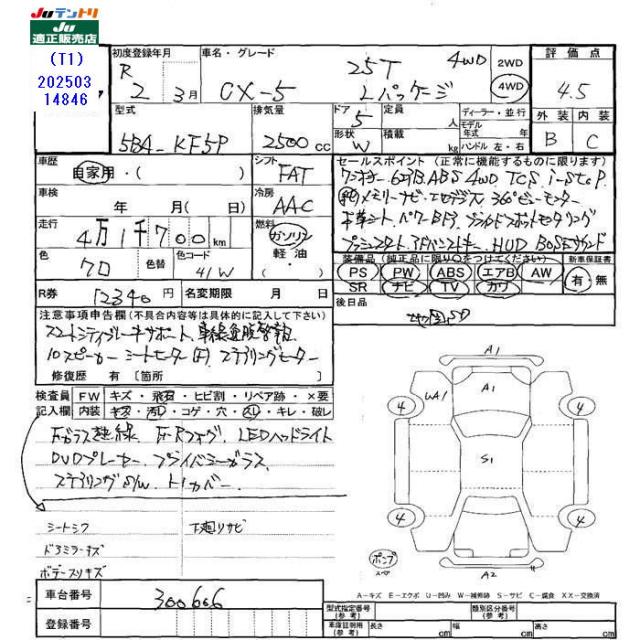 Juテントリ
Ju
適正販売店
(T1)
202503
14846
初度登録年月 車名・グレード 評価点
R 2 3月 CX-5 25T Lパッケージ 4WD 2WD 4WD 4.5
外装 内装
B C
型式 排気量 ドア 定員 ディーラー・並行
5BA-KF5P 2500cc 5 人 モデル年式 年
形状 W 積載 kg ハンドル 左・右
車歴 シフト セールスポイント(正常に機能するものに限ります)
自家用・( ) FAT ワンオーナー ABS 4WD TCS i-stoP
車検 冷房 メモリーナビ 360°ビューモニター
年 月( ) AAC 本革シート パワーBドア ブラインドスポットモニタリング
走行 燃料 プッシュスタート HUD BOSEサウンド
4万1千700km ガソリン
軽・油
( )
色 色替 色コード
クロ 41W
装備品(純正品に限り○をつけてください) 新車保証書
PS PW ABS エアB AW 有・無
SR ナビ TV カワ
R券 12340円 名変期限 月 日
後日品
注意事項申告欄(不具合内容等は具体的に記入して下さい)
スマートシティブレーキサポート、車線逸脱警報
10スピーカー シートヒーター(F) ステアリングヒーター
修復歴 有 〔箇所 〕
検査員記入欄
FW キズ・飛石・ヒビ割・リペア跡・×要
内装 キズ・汚レ・コゲ・穴・スレ・キレ・破レ
Fガラス熱線、F・Rフォグ、LEDヘッドライト
DVDプレーヤー、プライバシーガラス、
ステアリングS/W、トノカバー、
シートシワ 下廻りサビ
ドアミラーキズ
ボデースリキズ
A1
UA1 A1
4 4
S1
4 4
ポンプ
スペア
A2
A-キズ E-エクボ U-凹み W-補修跡 S-サビ C-腐食 XX-交換済
車台番号 300606
登録番号
型式指定番号(参考) 類別区分番号(参考)
車庫証明用(参考) 長さ cm 幅 cm 高さ cm